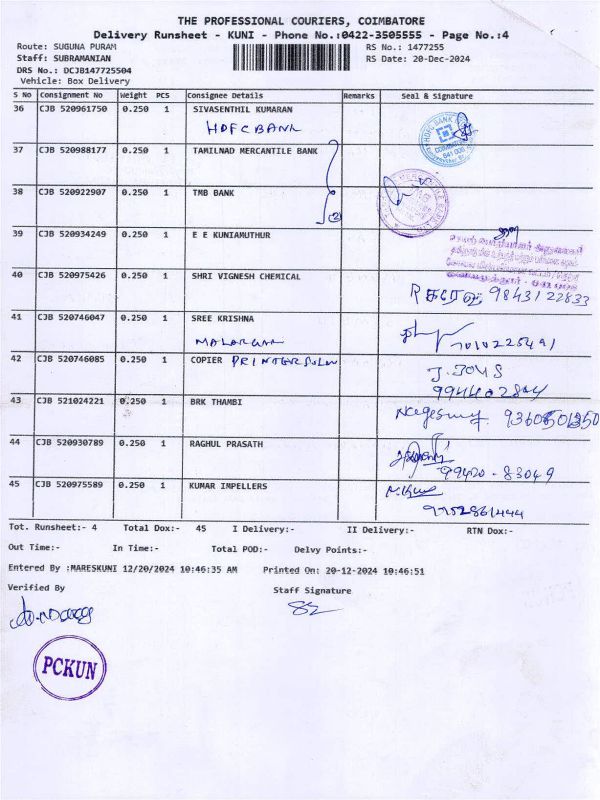 THE PROFESSIONAL COURIERS, COIMBATORE
Delivery Runsheet - KUNI - Phone No.:0422-3505555 - Page No.:4
Route: SUGUNA PURAM RS No.: 1477255
Staff: SUBRAMANIAN RS Date: 20-Dec-2024
DRS No.: DCJB147725504
Vehicle: Box Delivery
S No Consignment No Weight PCS Consignee Details Remarks Seal & Signature
36 CJB 520961750 0.250 1 SIVASENTHIL KUMARAN
HDFC BANK
37 CJB 520988177 0.250 1 TAMILNAD MERCANTILE BANK
38 CJB 520922907 0.250 1 TMB BANK
39 CJB 520934249 0.250 1 E E KUNIAMUTHUR
40 CJB 520975426 0.250 1 SHRI VIGNESH CHEMICAL
9843122833
41 CJB 520746047 0.250 1 SREE KRISHNA
42 CJB 520746085 0.250 1 COPIER PRINTER
J. JOYS
43 CJB 521024221 0.250 1 BRK THAMBI
44 CJB 520930789 0.250 1 RAGHUL PRASATH
99420 - 83049
45 CJB 520975589 0.250 1 KUMAR IMPELLERS
Tot. Runsheet:- 4 Total Dox:- 45 I Delivery:- II Delivery:- RTN Dox:-
Out Time:- In Time:- Total POD:- Delvy Points:-
Entered By :MARESKUNI 12/20/2024 10:46:35 AM Printed On: 20-12-2024 10:46:51
Verified By Staff Signature
PCKUN